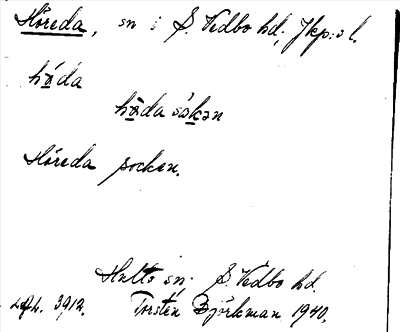 Höreda, sn i S. Vedbo hd, Jkp:s l.
hö̀da
hö̀da såkən
Höreda socken.
Hults sn; S. Vedbo hd.
3912. Torsten Björkman 1940.